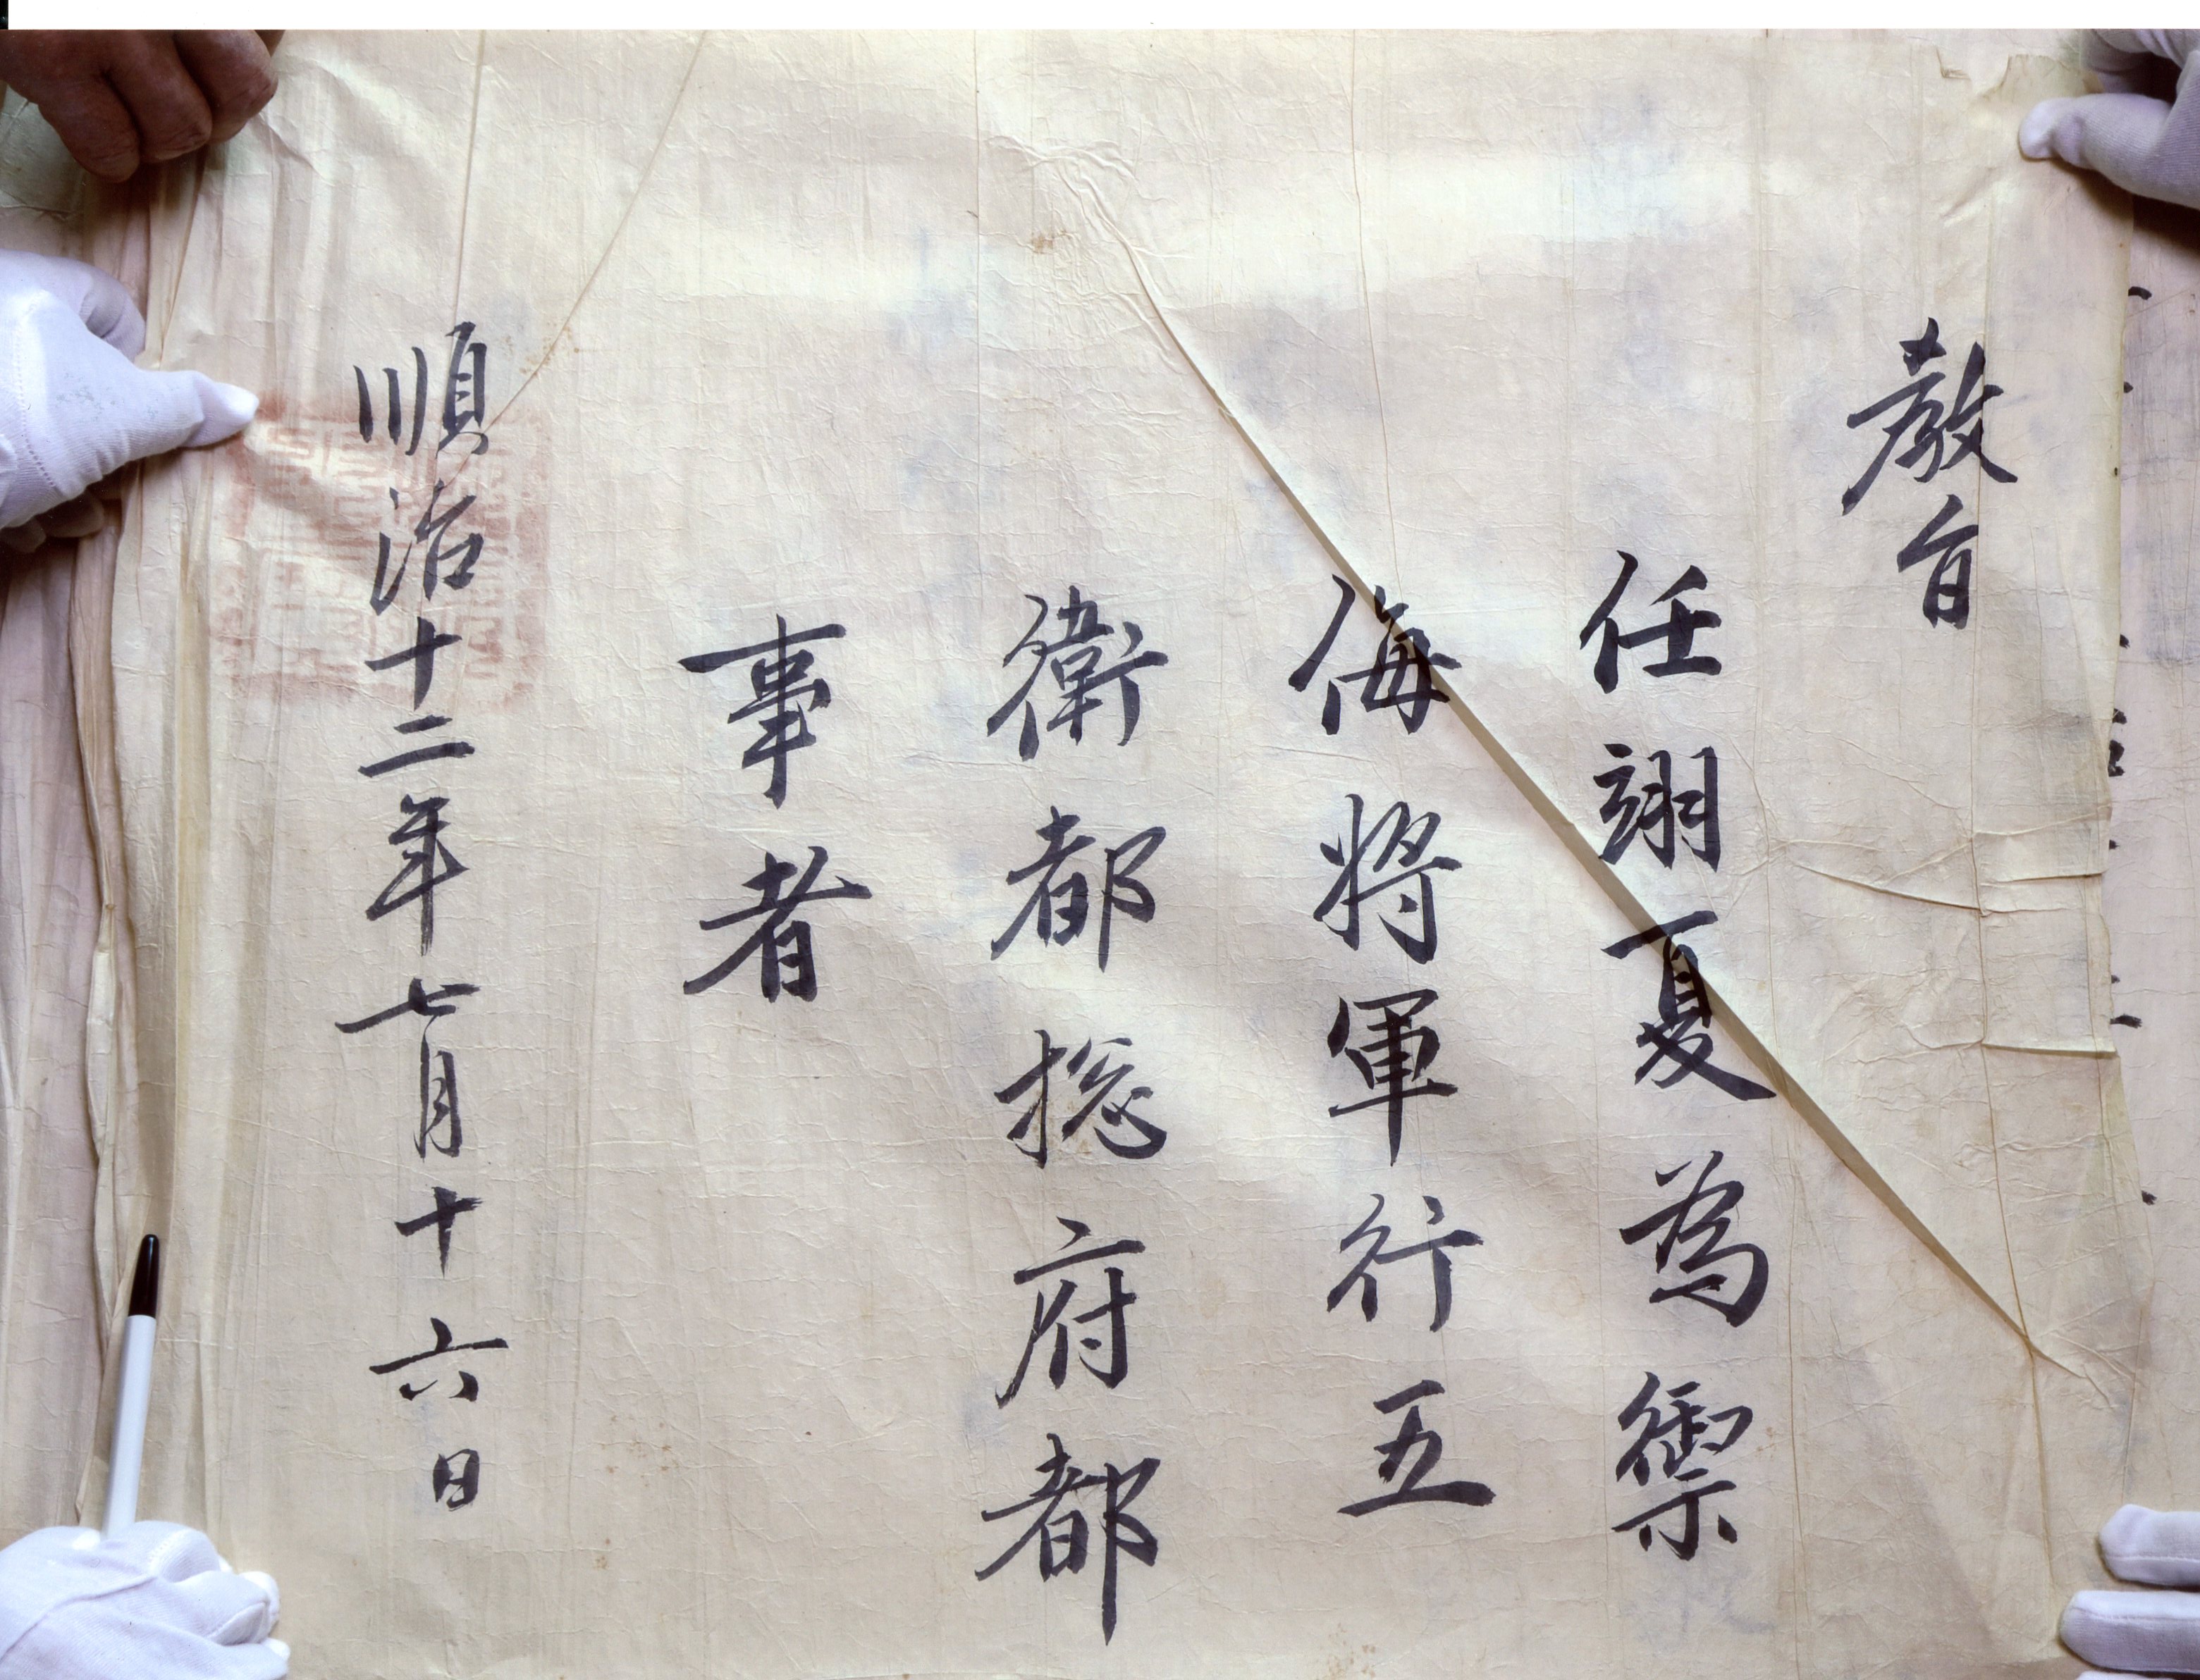 教旨
任翊夏為禦
侮將軍行五
衛都摠府都
事者
順治十二年七月十六日